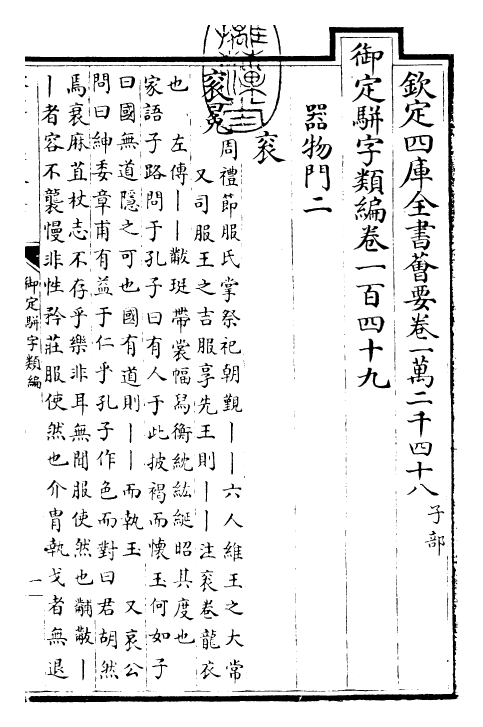 欽定四庫全書薈要卷一萬二千四十八子部
御定駢字類編卷一百四十九
器物門二
袞
袞冕周禮節服氏掌祭祀朝覲丨丨六人維王之大常
又司服王之吉服享先王則丨丨注袞卷龍衣
也 左傳丨丨黻珽帶裳幅舄衡紞紘綖昭其度也
家語子路問于孔子曰有人于此披褐而懷玉何如子
曰國無道隱之可也國有道則丨丨而執玉 又哀公
問曰紳委章甫有益于仁乎孔子作色而對曰君胡然
焉衰麻苴杖志不存乎樂非耳無聞服使然也黼黻丨
丨者容不襲慢非性矜莊服使然也介胄執戈者無退
御定駢字類編
一